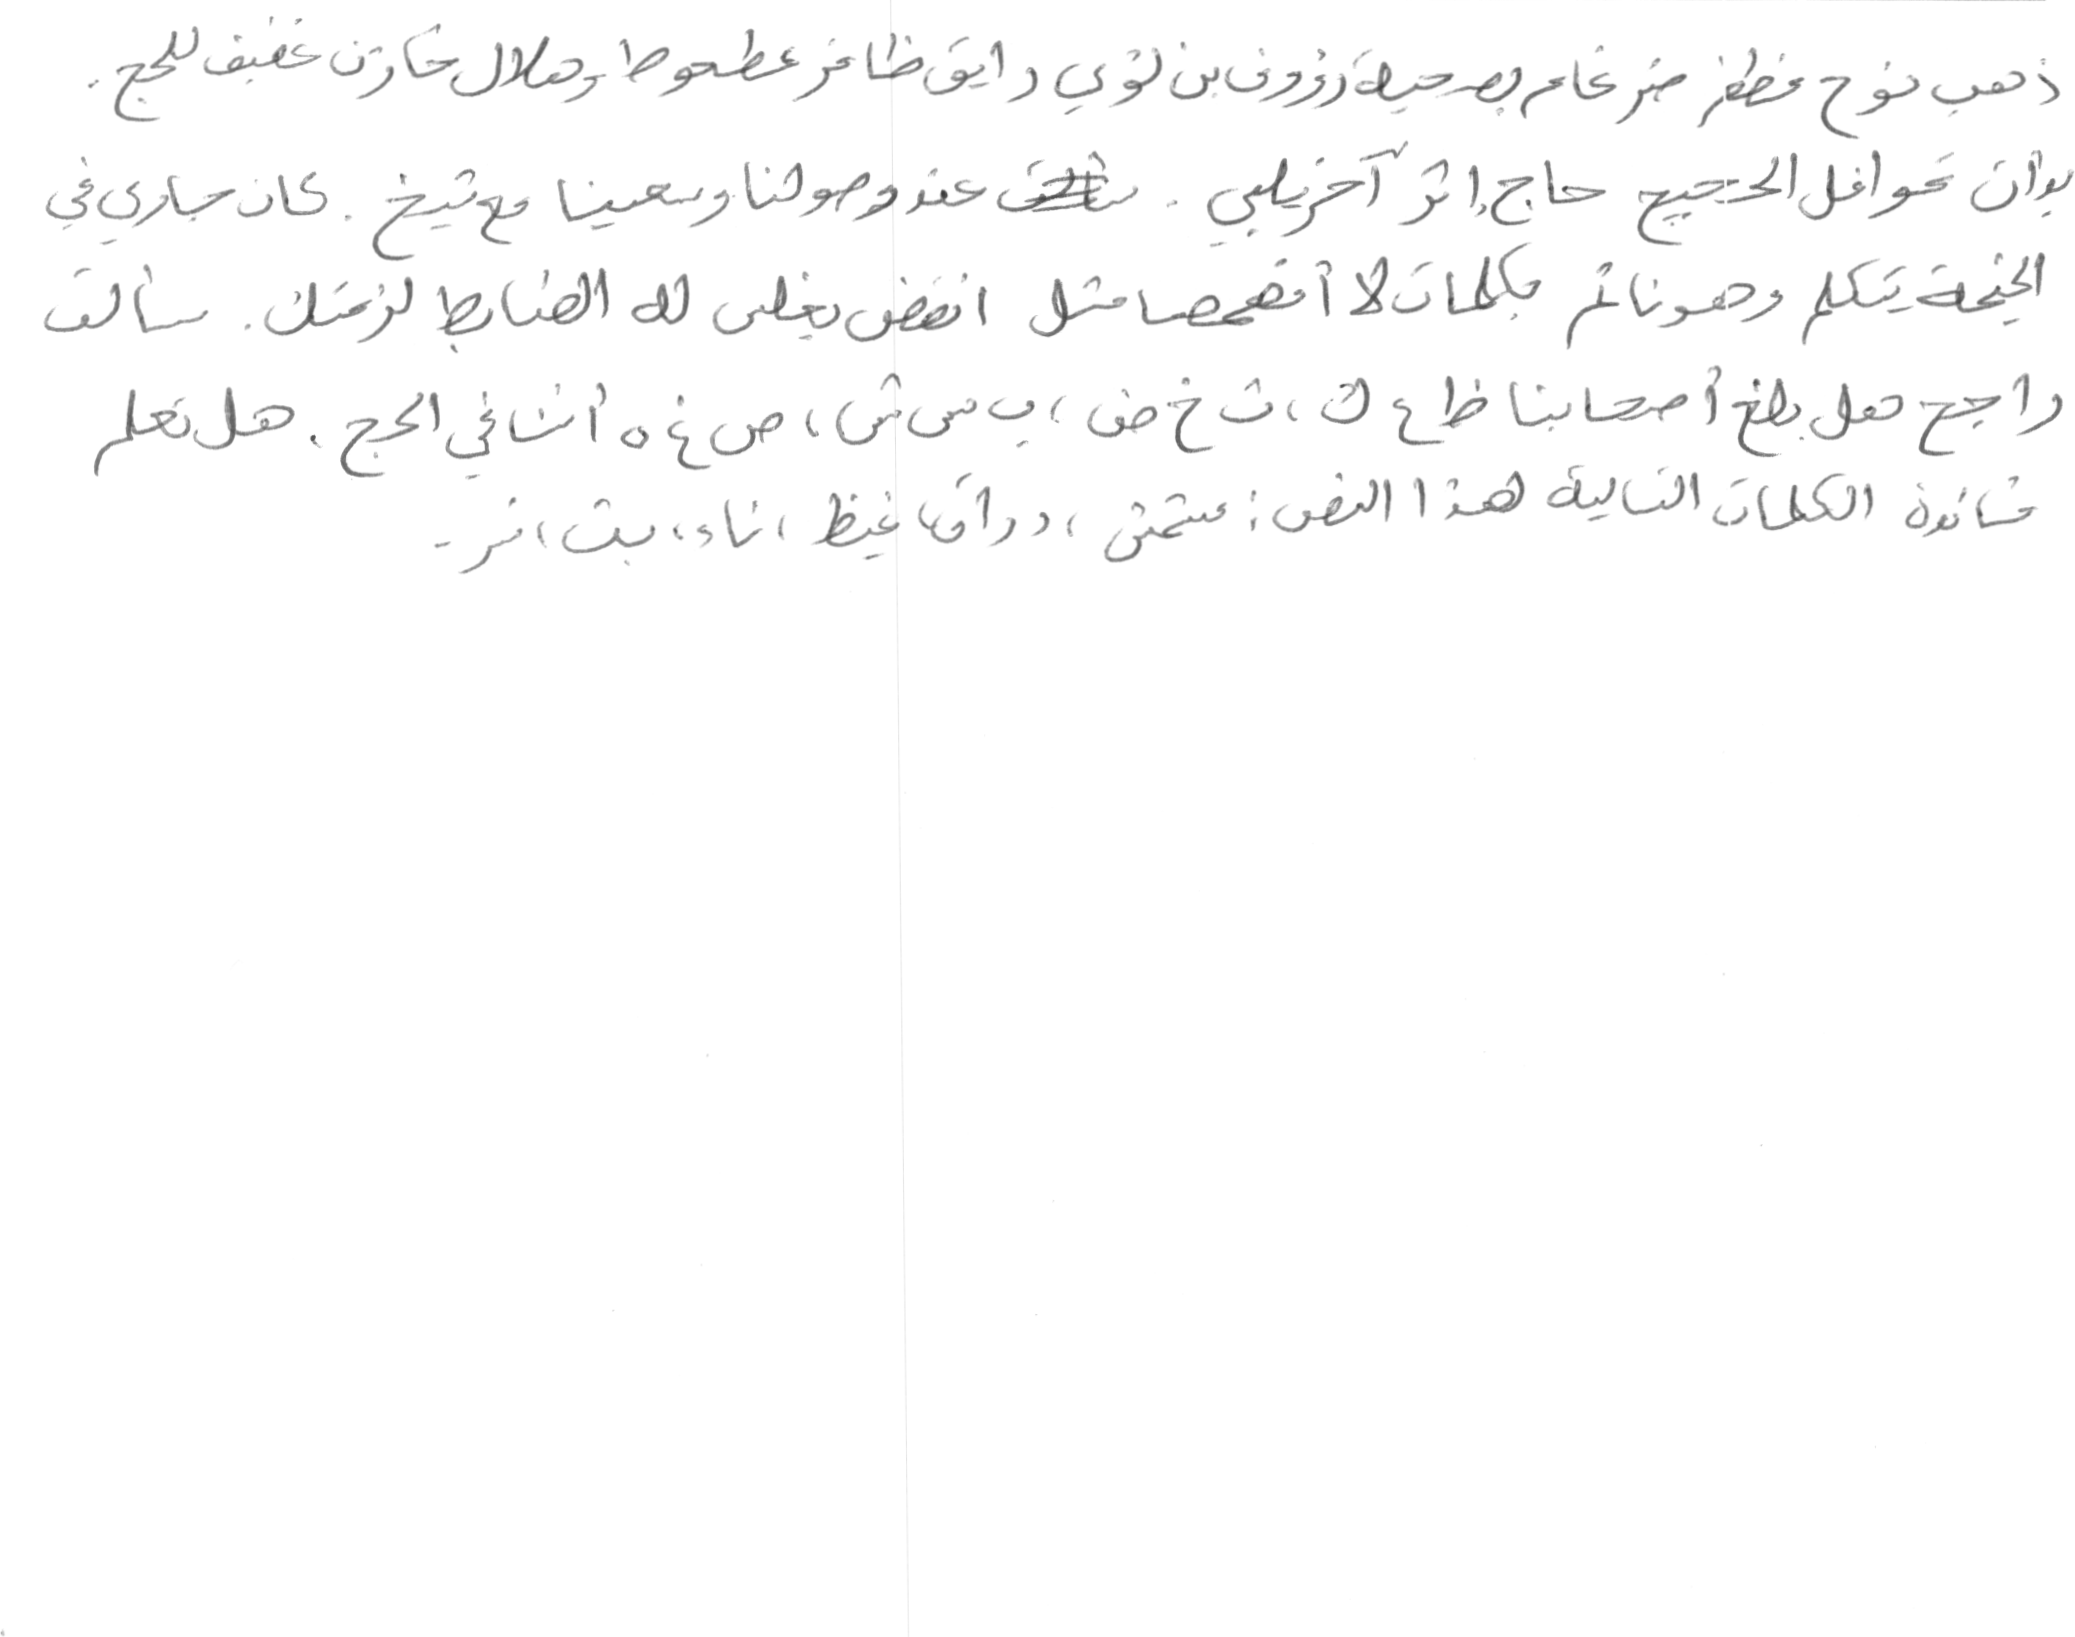 ذهب نوح مظفر ضرغام بصحبة رؤوف بن لؤي رايق ظافر عطحوط وهلال حارث عفيف للحج.
بدأت قوافل الحجيج حاج إثر آخر يلبي. عند وصولنا وسعينا مع شيخ. كان جاري في
الخيمة يتكلم وهو نائم بكلمات لا أفهمها مثل انقض يغلس له الضابط لزعتك. سألت
راجح هل بلغ أصحابنا ظ ع ك، ث خ ض، ب س ش، ص غ ه أشنا في الحج. هل تعلم
أن الكلمات التالية لهذا النص: مشمش، دراق، غيظ، ناء، بت، نر.